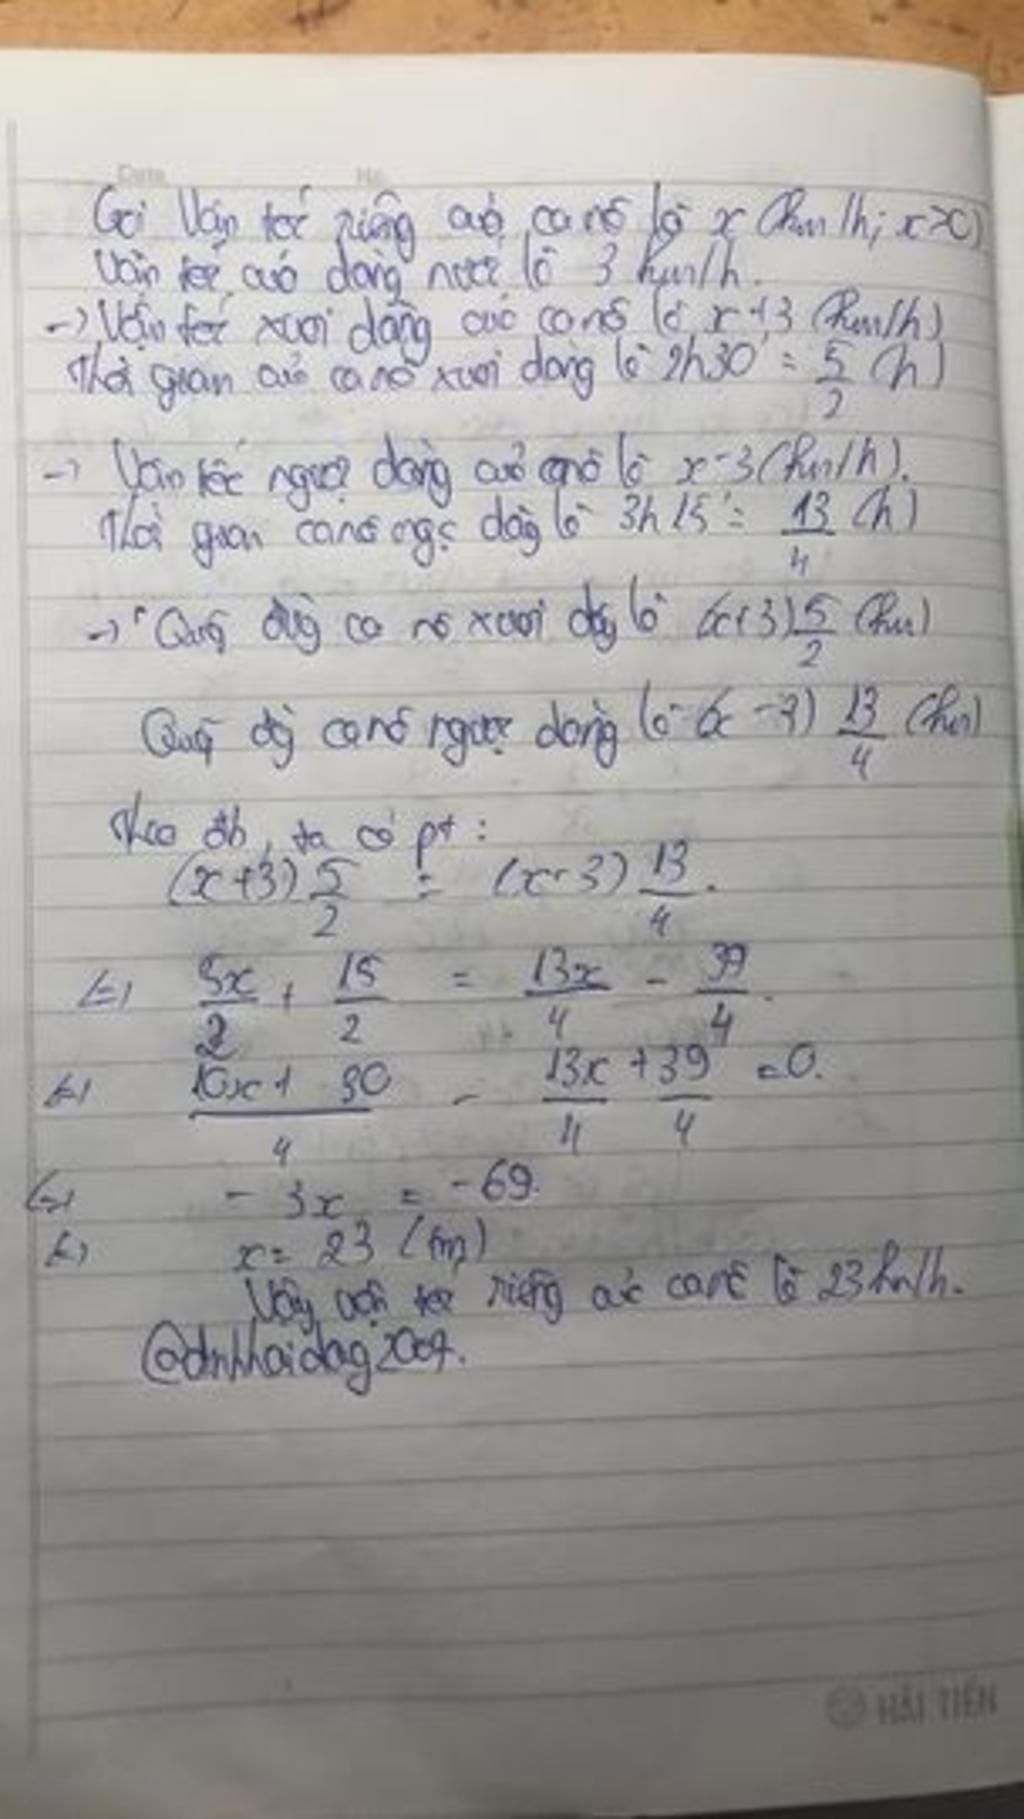 Date No
Gọi vận tốc riêng của ca nô là x (km/h; x>0)
Vận tốc của dòng nước là 3 km/h.
-> Vận tốc xuôi dòng của ca nô là x+3 (km/h)
Thời gian của ca nô xuôi dòng là 2h30' = 5/2 (h)
-> Vận tốc ngược dòng của canô là x-3 (km/h).
Thời gian canô ngc dòng là 3h15' = 13/4 (h)
-> Quãg đườg ca nô xuôi dòg là (x+3) 5/2 (km)
Quãg đg canô ngược dòng là (x-3) 13/4 (km)
Theo đb, ta có pt:
(x+3) 5/2 = (x-3) 13/4.
<=> 5x/2 + 15/2 = 13x/4 - 39/4.
<=> 10x+30/4 - 13x/4 + 39/4 = 0.
<=> -3x = -69.
<=> x = 23 (tm)
Vậy vận tốc riêng của canô là 23 km/h.
HẢI TIẾN